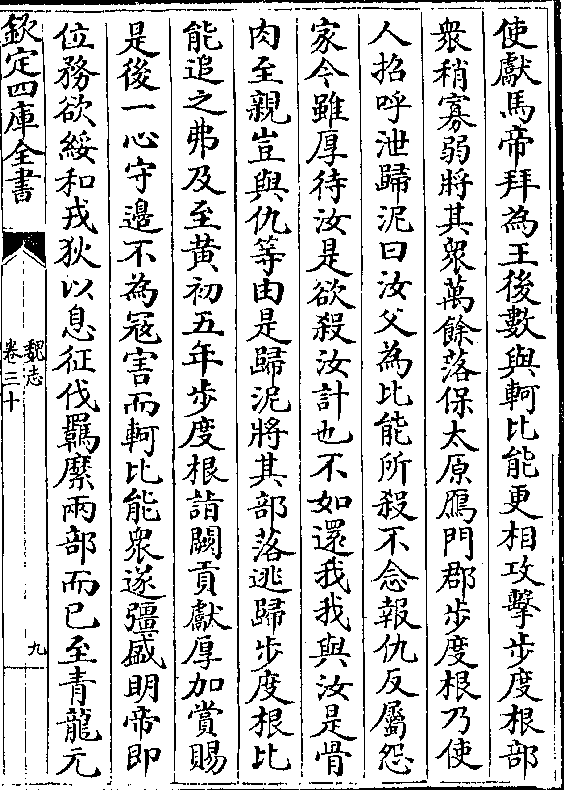 使獻馬帝拜為王後數與軻比能更相攻擊步度根部
衆稍寡弱將其衆萬餘落保太原鴈門郡步度根乃使
人招呼泄歸泥曰汝父為比能所殺不念報仇反屬怨
家今雖厚待汝是欲殺汝計也不如還我我與汝是骨
肉至親豈與仇等由是歸泥將其部落逃歸步度根比
能追之弗及至黃初五年步度根詣闕貢獻厚加賞賜
是後一心守邊不為冦害而軻比能衆遂彊盛明帝即
位務欲綏和戎狄以息征伐羈縻兩部而已至青龍元
欽定四庫全書
魏志
卷三十
九